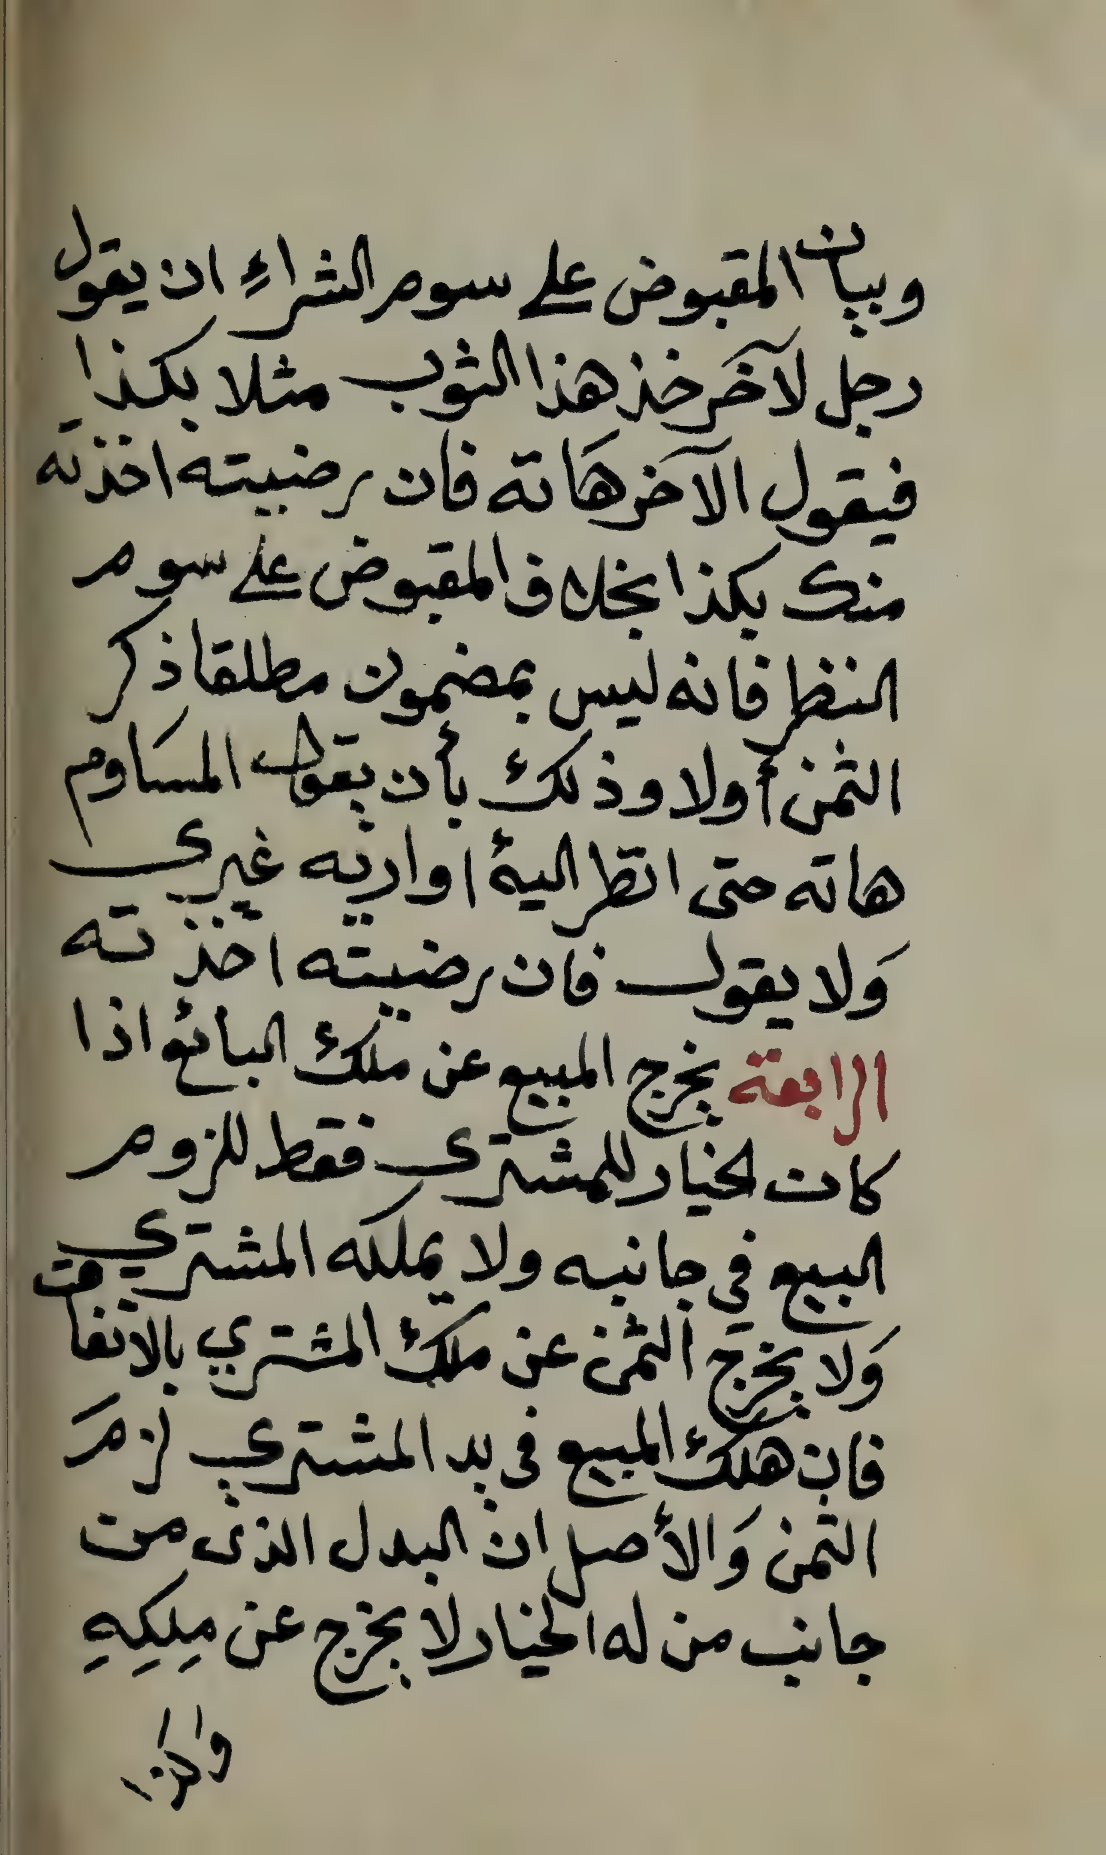 وبيان المقبوض على سوم الشراءِ ان يقول
رجل لآخَر خذ هذا الثوب مثلا بكذا
فيقول الآخر هَاته فان رضيته اخذته
منك بكذا بخلاف المقبوض على سوم
النظر فانه ليس بمضمون مطلقا ذكر
الثمن أولا وذلك بأن يقول المسَاوم
هاته حتى انظر اليه او اريه غيري
وَلا يقول فان رضيته اخذته
الرابعة يخرج المبيع عن ملك البائع اذا
كان الخيار للمشتري فقط للزوم
البيع في جانبه ولا يملكه المشتري
وَلا يخرج الثمن عن ملك المشتري بالاتفاق
فان هلك المبيع في يد المشتري لزمَ
الثمن وَالأصل ان البدل الذى من
جانب من له الخيار لا يخرج عن مِلكِهِ